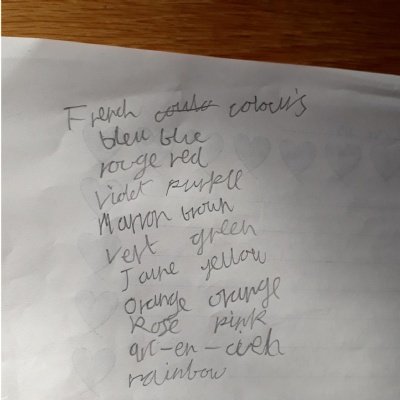 French colour's
bleu blue
rouge red
violet purple
Marron brown
vert green
Jaune yellow
orange orange
Rose pink
arc-en-
rainbow